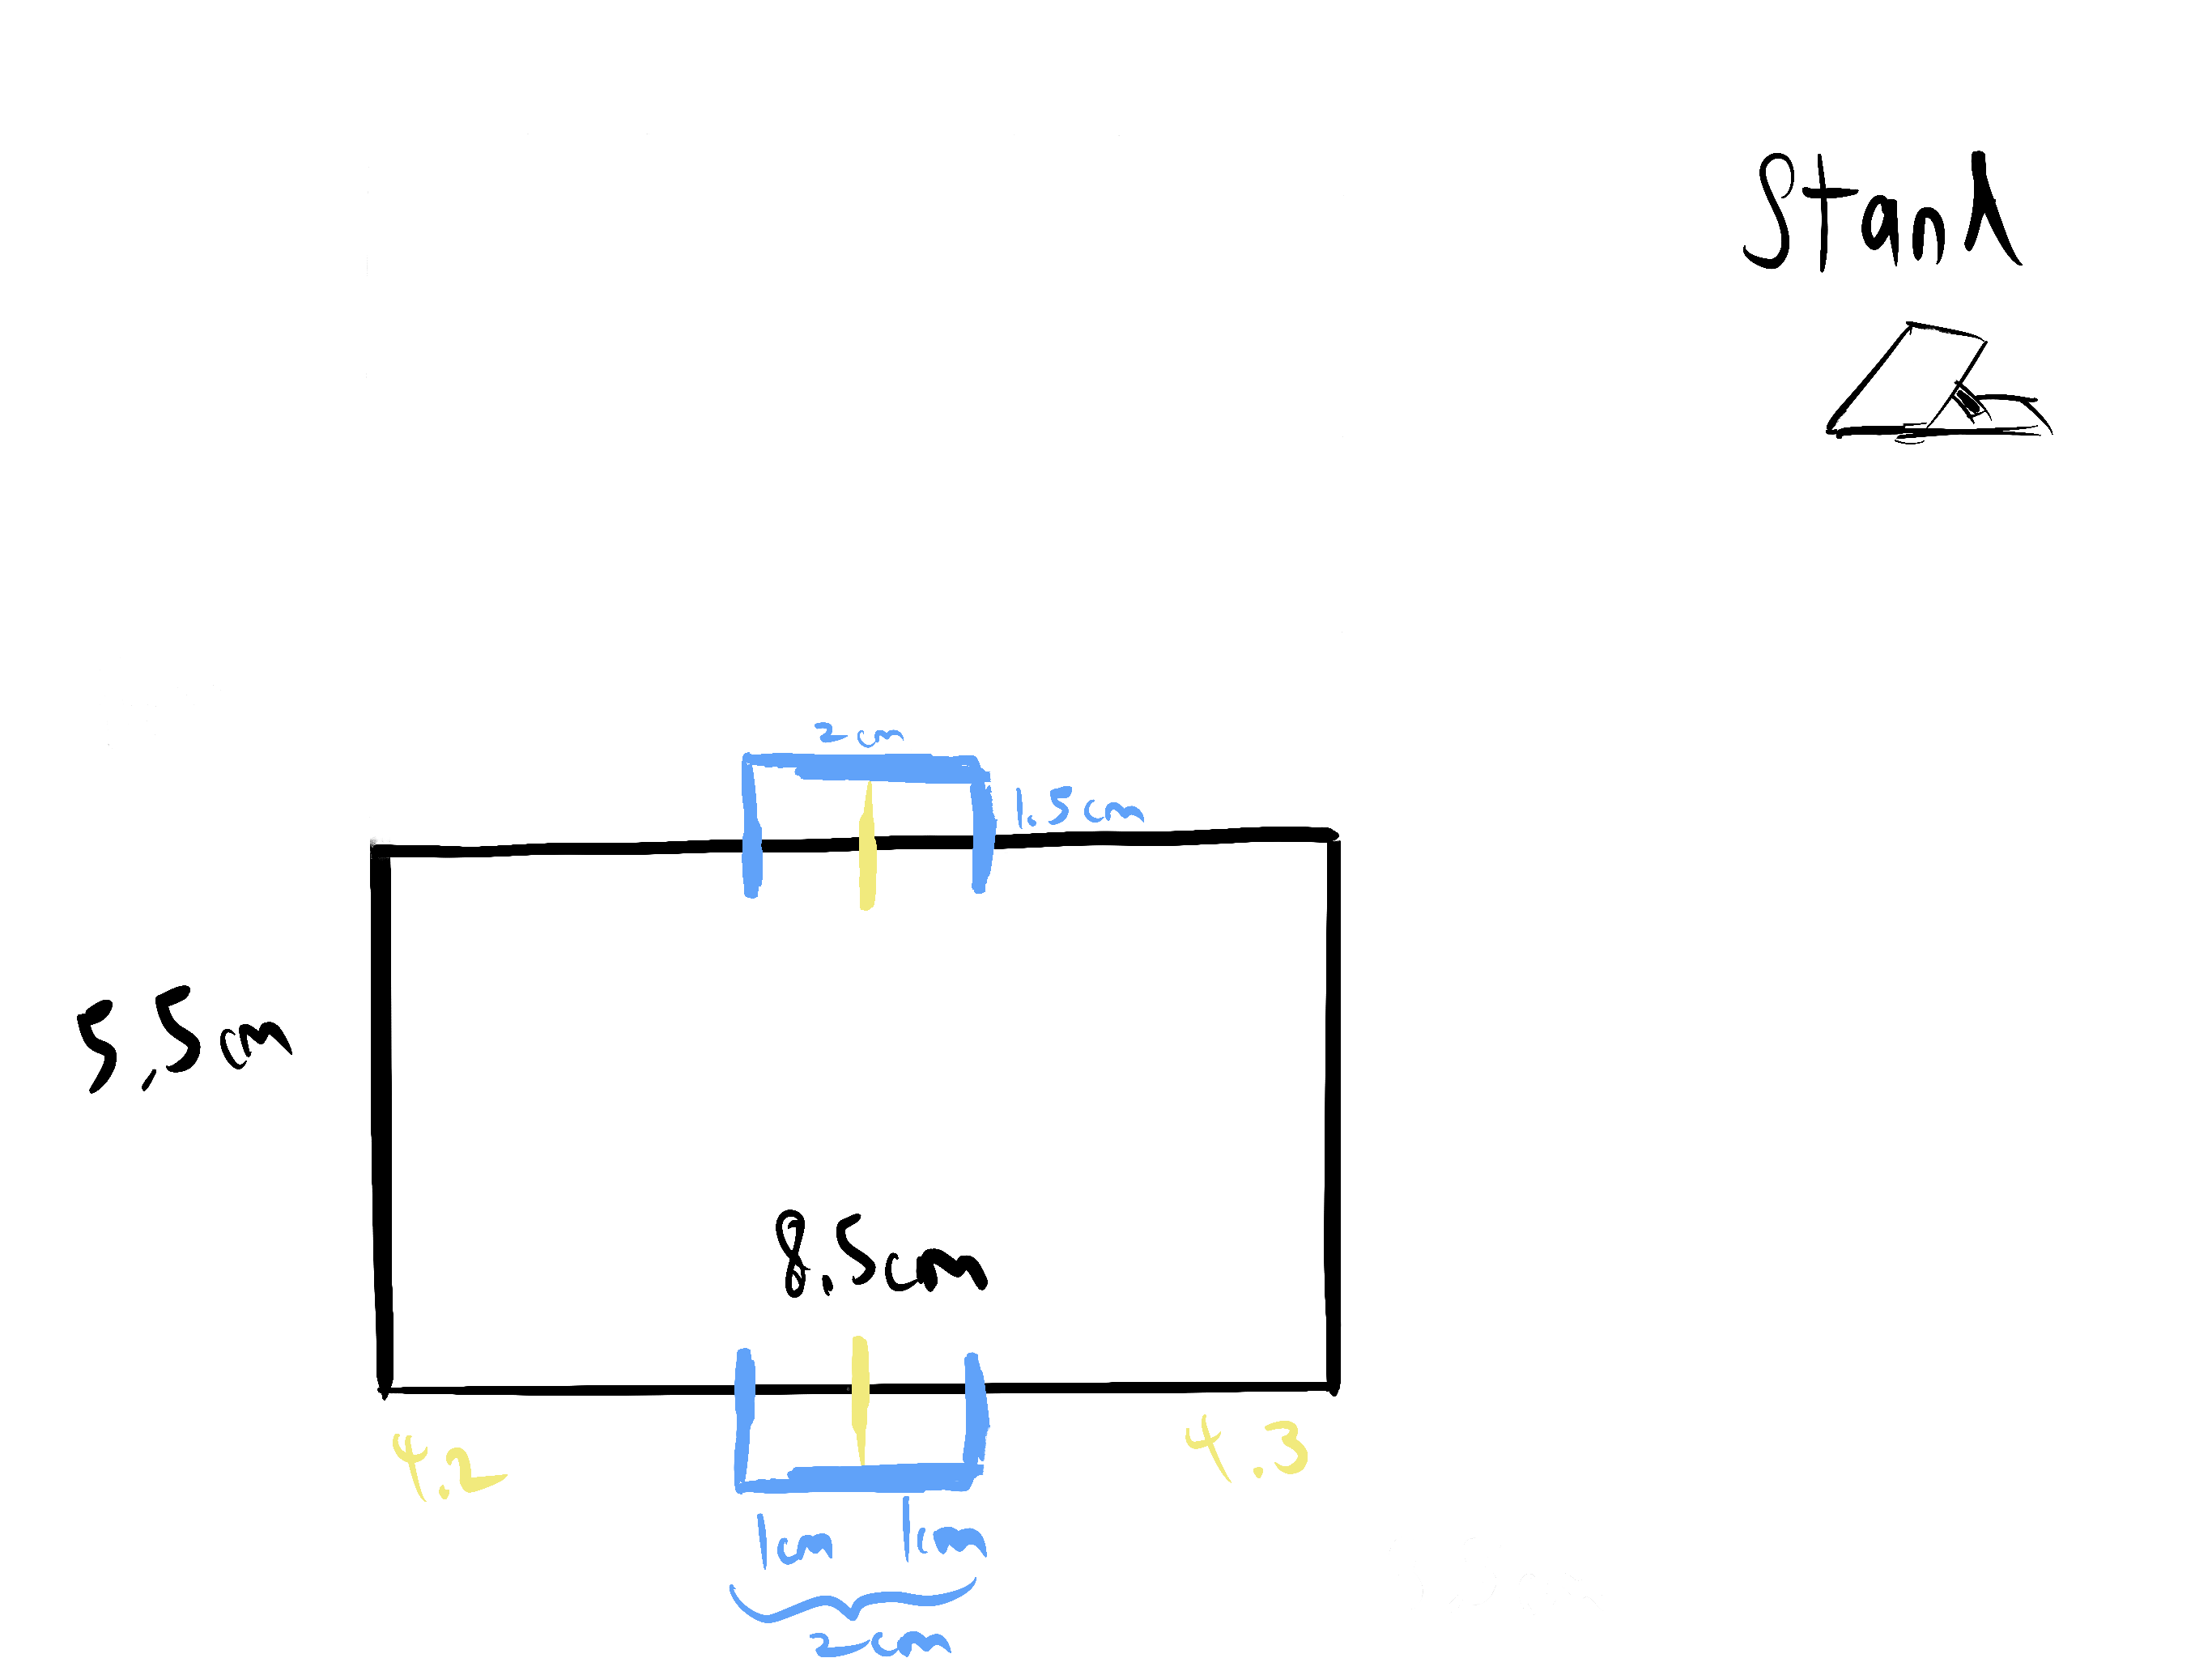 Stand
2cm
1.5cm
5,5cm
8.5cm
4.2
4.3
1cm 1cm
2cm